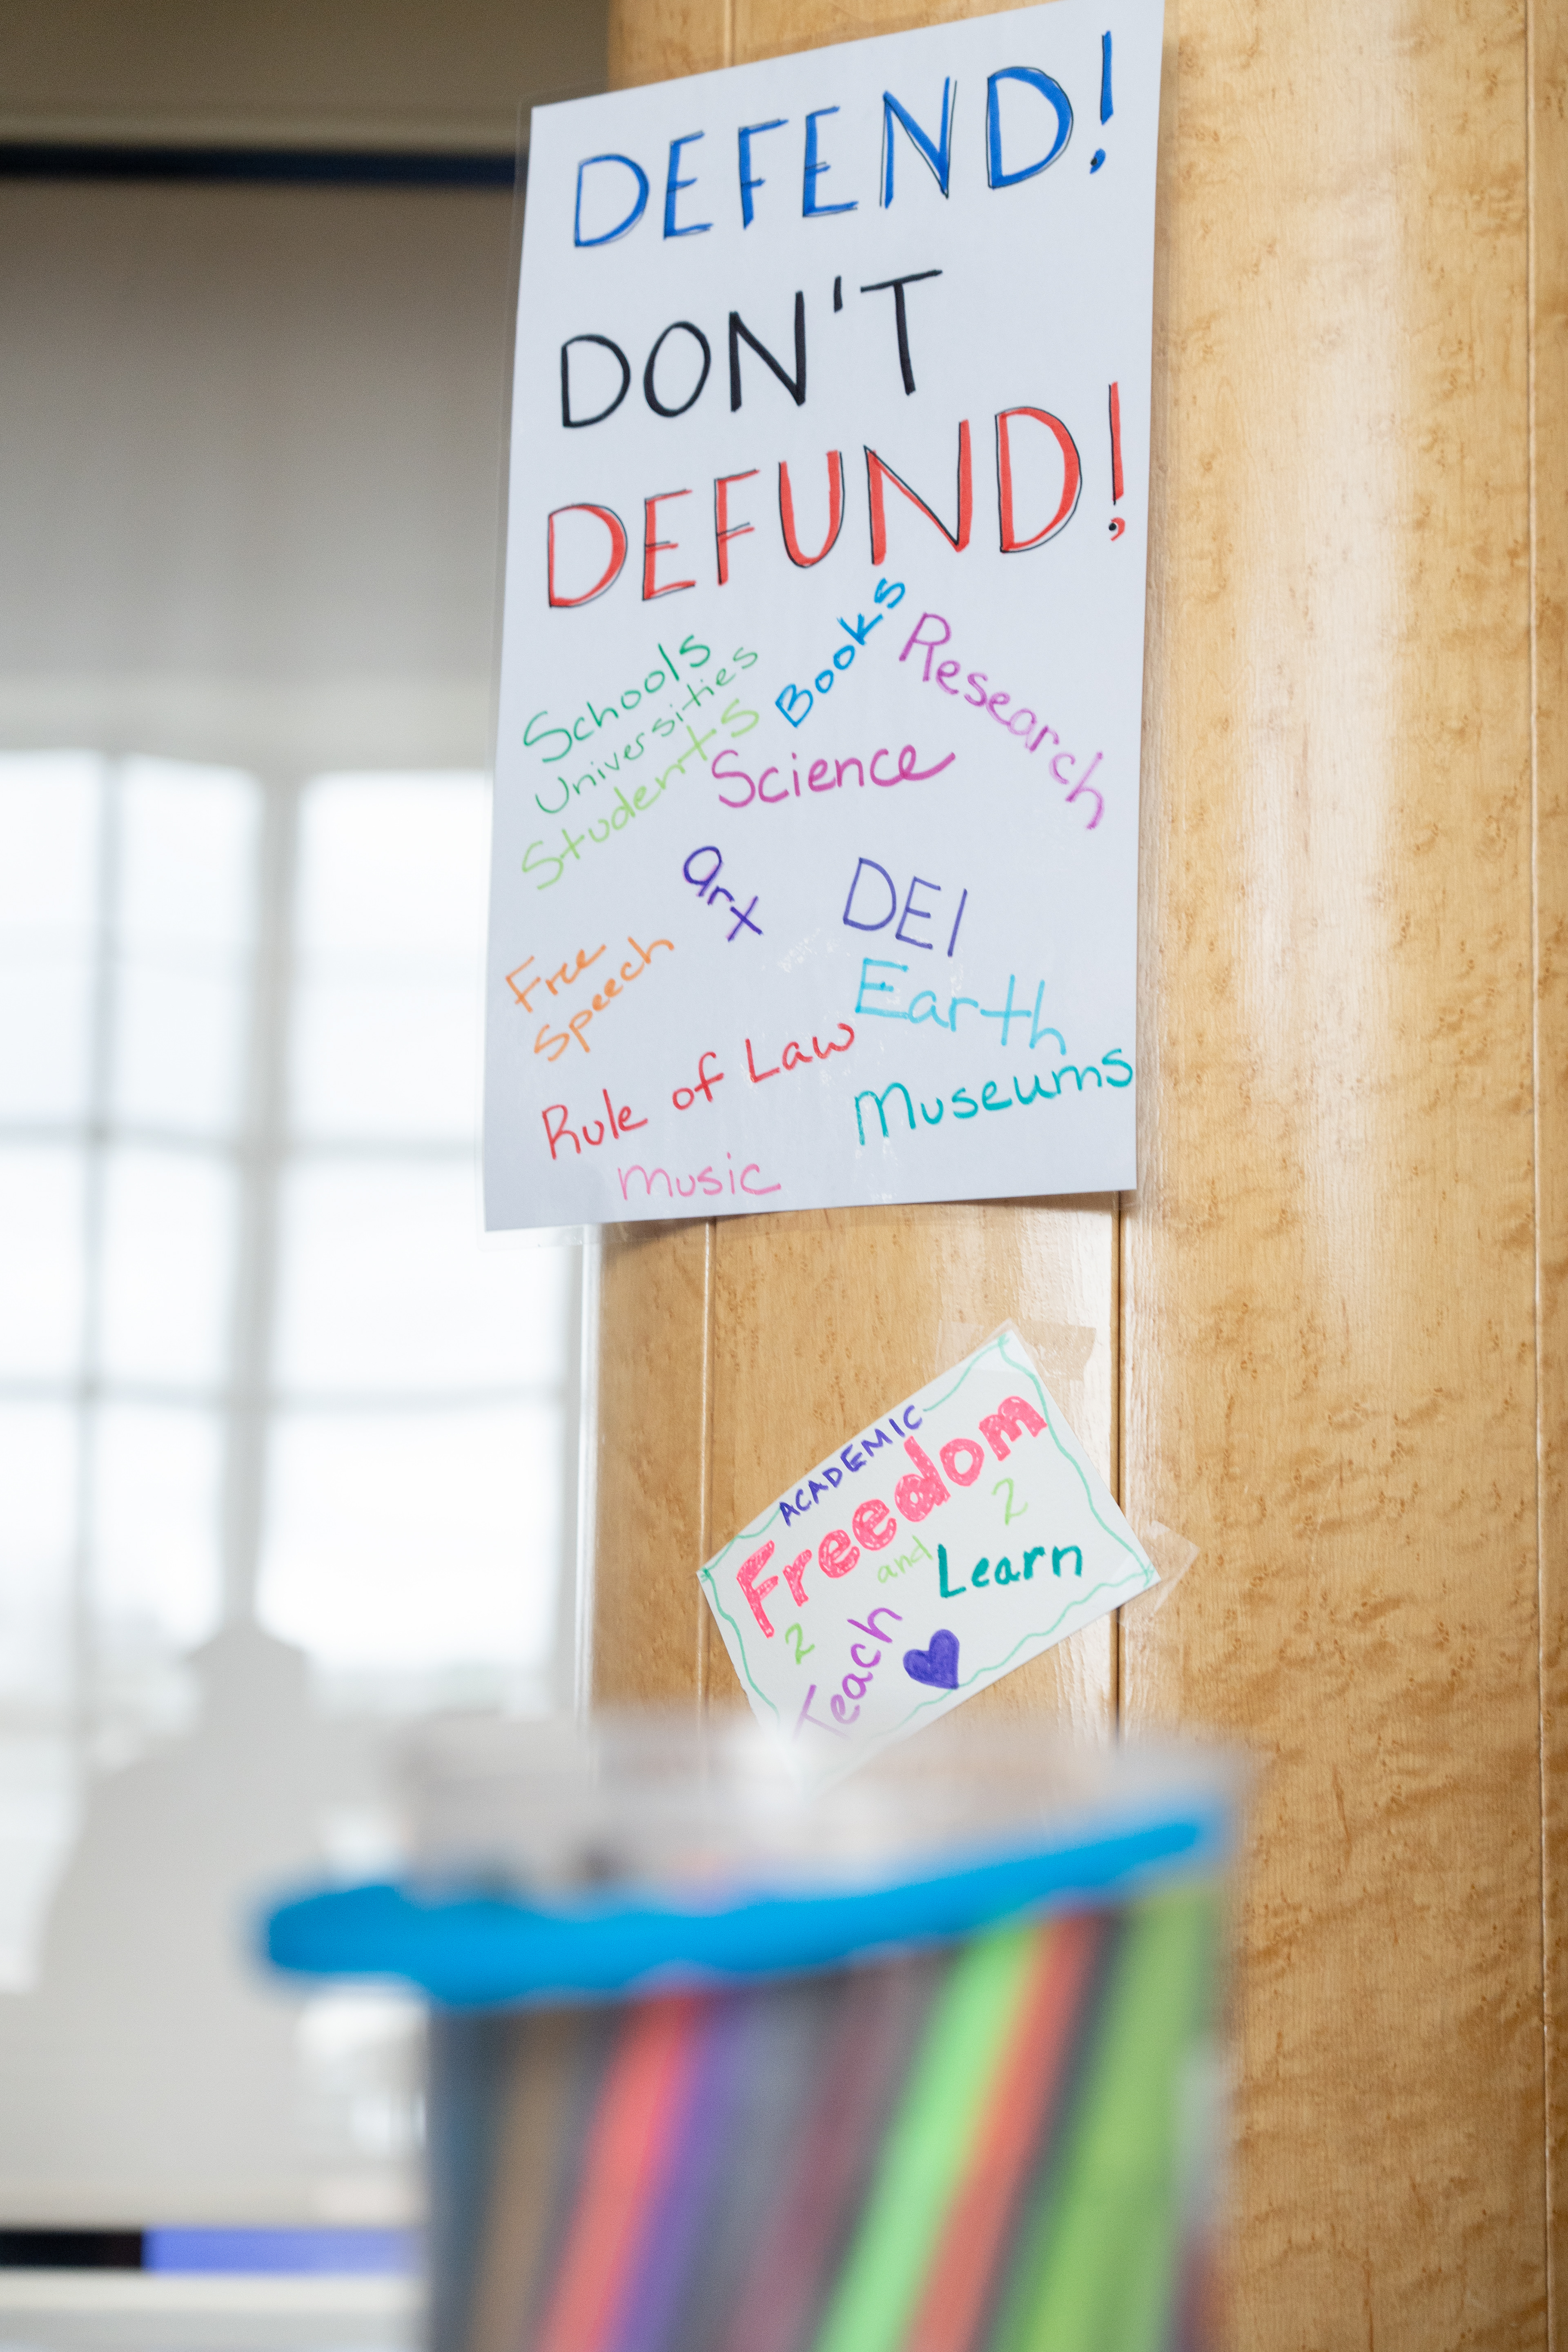 DEFEND!
DON'T
DEFUND!
Schools
Universities
Students
Books
Research
Science
art
DEI
Free
Speech
Earth
Rule of Law
Museums
music
ACADEMIC
Freedom
2
Teach
and
2
Learn